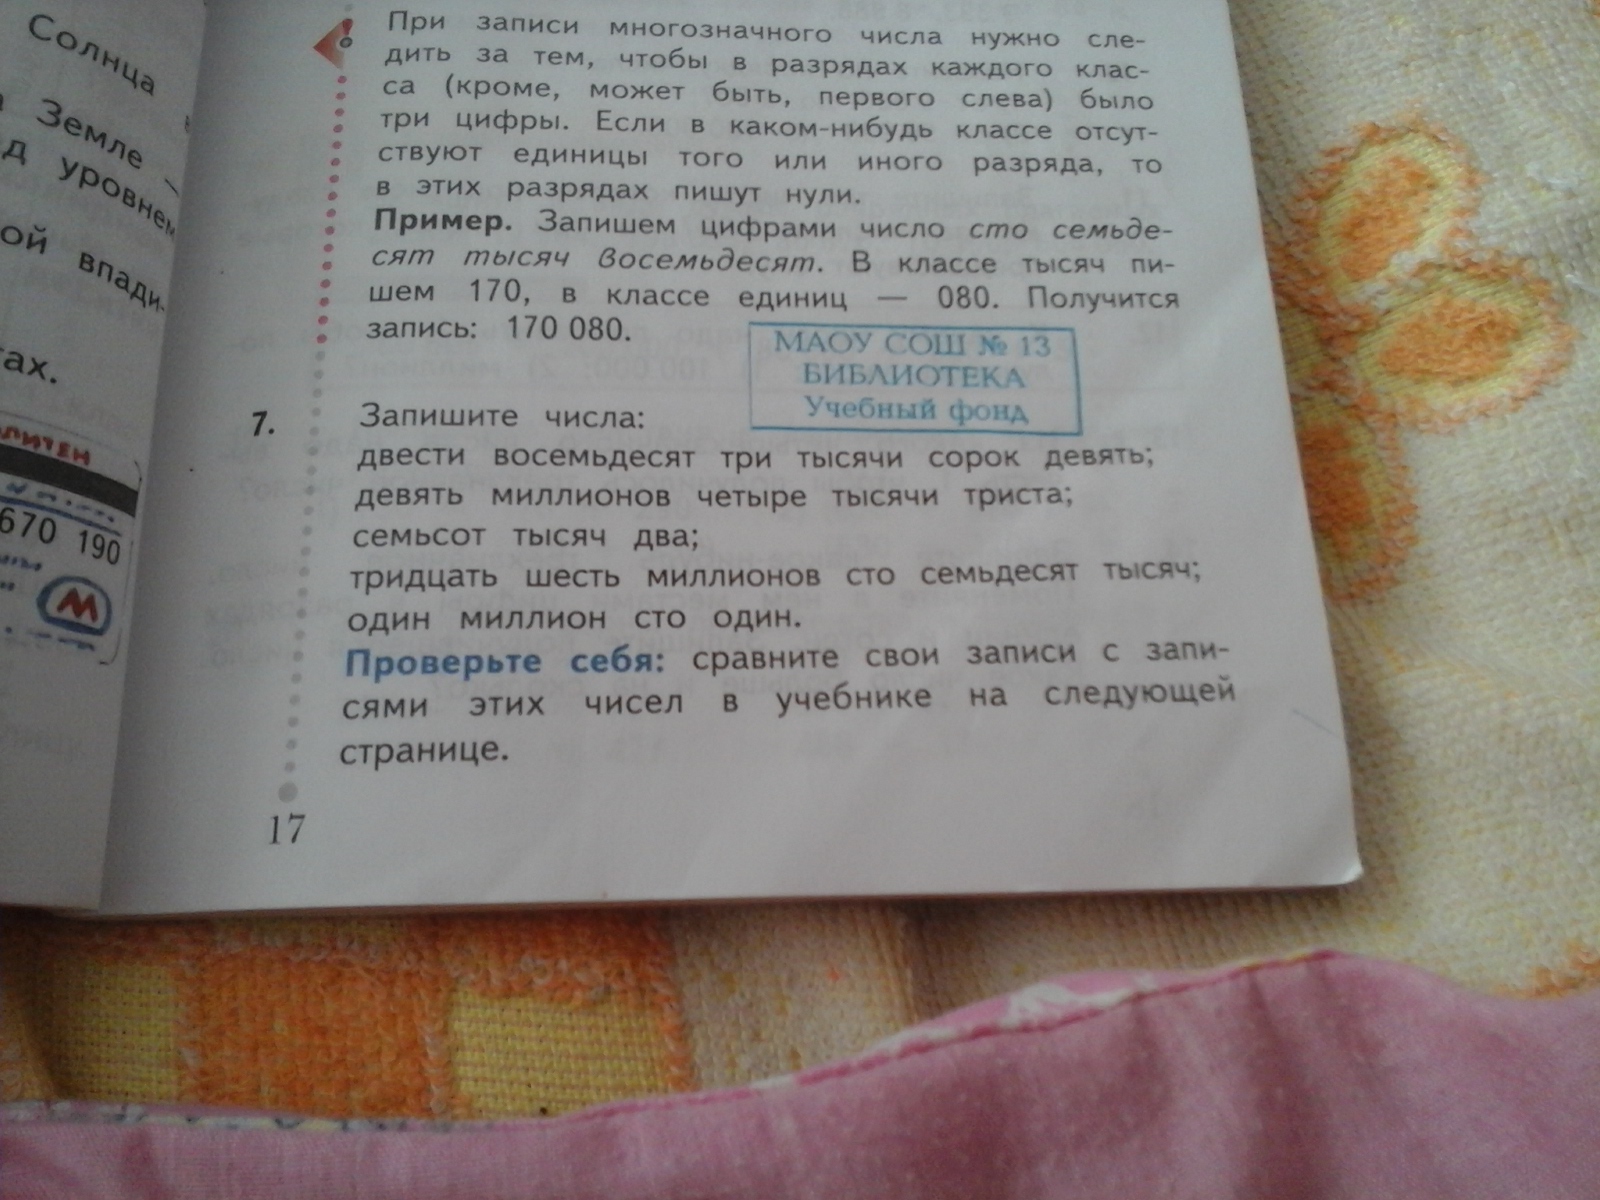 Солнца
Земле —
д уровнем
ой впади-
тах.
670 190
При записи многозначного числа нужно сле-
дить за тем, чтобы в разрядах каждого клас-
са (кроме, может быть, первого слева) было
три цифры. Если в каком-нибудь классе отсут-
ствуют единицы того или иного разряда, то
в этих разрядах пишут нули.
Пример. Запишем цифрами число сто семьде-
сят тысяч восемьдесят. В классе тысяч пи-
шем 170, в классе единиц — 080. Получится
запись: 170 080.
МАОУ СОШ № 13
БИБЛИОТЕКА
Учебный фонд
7. Запишите числа:
двести восемьдесят три тысячи сорок девять;
девять миллионов четыре тысячи триста;
семьсот тысяч два;
тридцать шесть миллионов сто семьдесят тысяч;
один миллион сто один.
Проверьте себя: сравните свои записи с запи-
сями этих чисел в учебнике на следующей
странице.
17